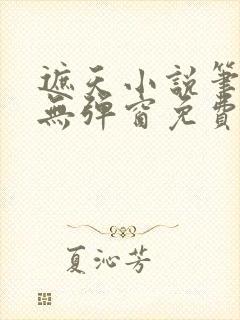 遮天小說筆
無彈窗免費
夏沁芳